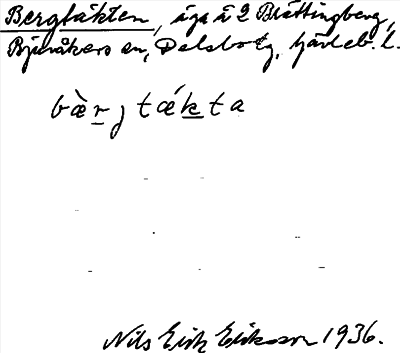 Bergtäkten, äga å 2 Blåttingberg,
Bjuråkers sn, Delsbo tg, Gävleb. l.
bæ̀rg tǽkta
Nils Erik Eriksson 1936.